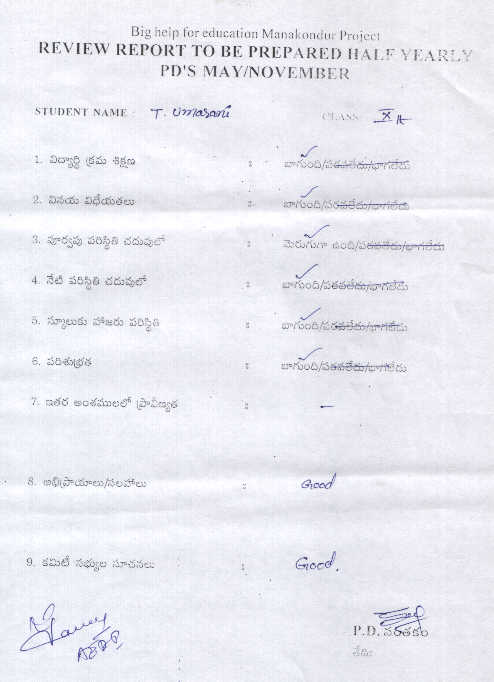 Big help for education Manakondur Project
REVIEW REPORT TO BE PREPARED HALF YEARLY
PD'S MAY/NOVEMBER
STUDENT NAME : T. Umarani CLASS: X A
1. విద్యార్థి క్రమ శిక్షణ : బాగుంది/పరవలేదు/బాగలేదు
2. వినయ విధేయతలు : బాగుంది/పరవలేదు/బాగలేదు
3. పూర్వపు పరిస్థితి చదువులో : మెరుగుగా ఉంది/పరవలేదు/బాగలేదు
4. నేటి పరిస్థితి చదువులో : బాగుంది/పరవలేదు/బాగలేదు
5. స్కూలుకు హాజరు పరిస్థితి : బాగుంది/పరవలేదు/బాగలేదు
6. పరిశుభ్రత : బాగుంది/పరవలేదు/బాగలేదు
7. ఇతర అంశములలో ప్రావీణ్యత : –
8. అభిప్రాయాలు/సలహాలు : Good
9. కమిటీ సభ్యుల సూచనలు : Good.
P.D. సంతకం
తేది: